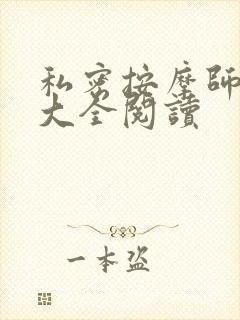 私密按摩師
大全閱讀
一本盜